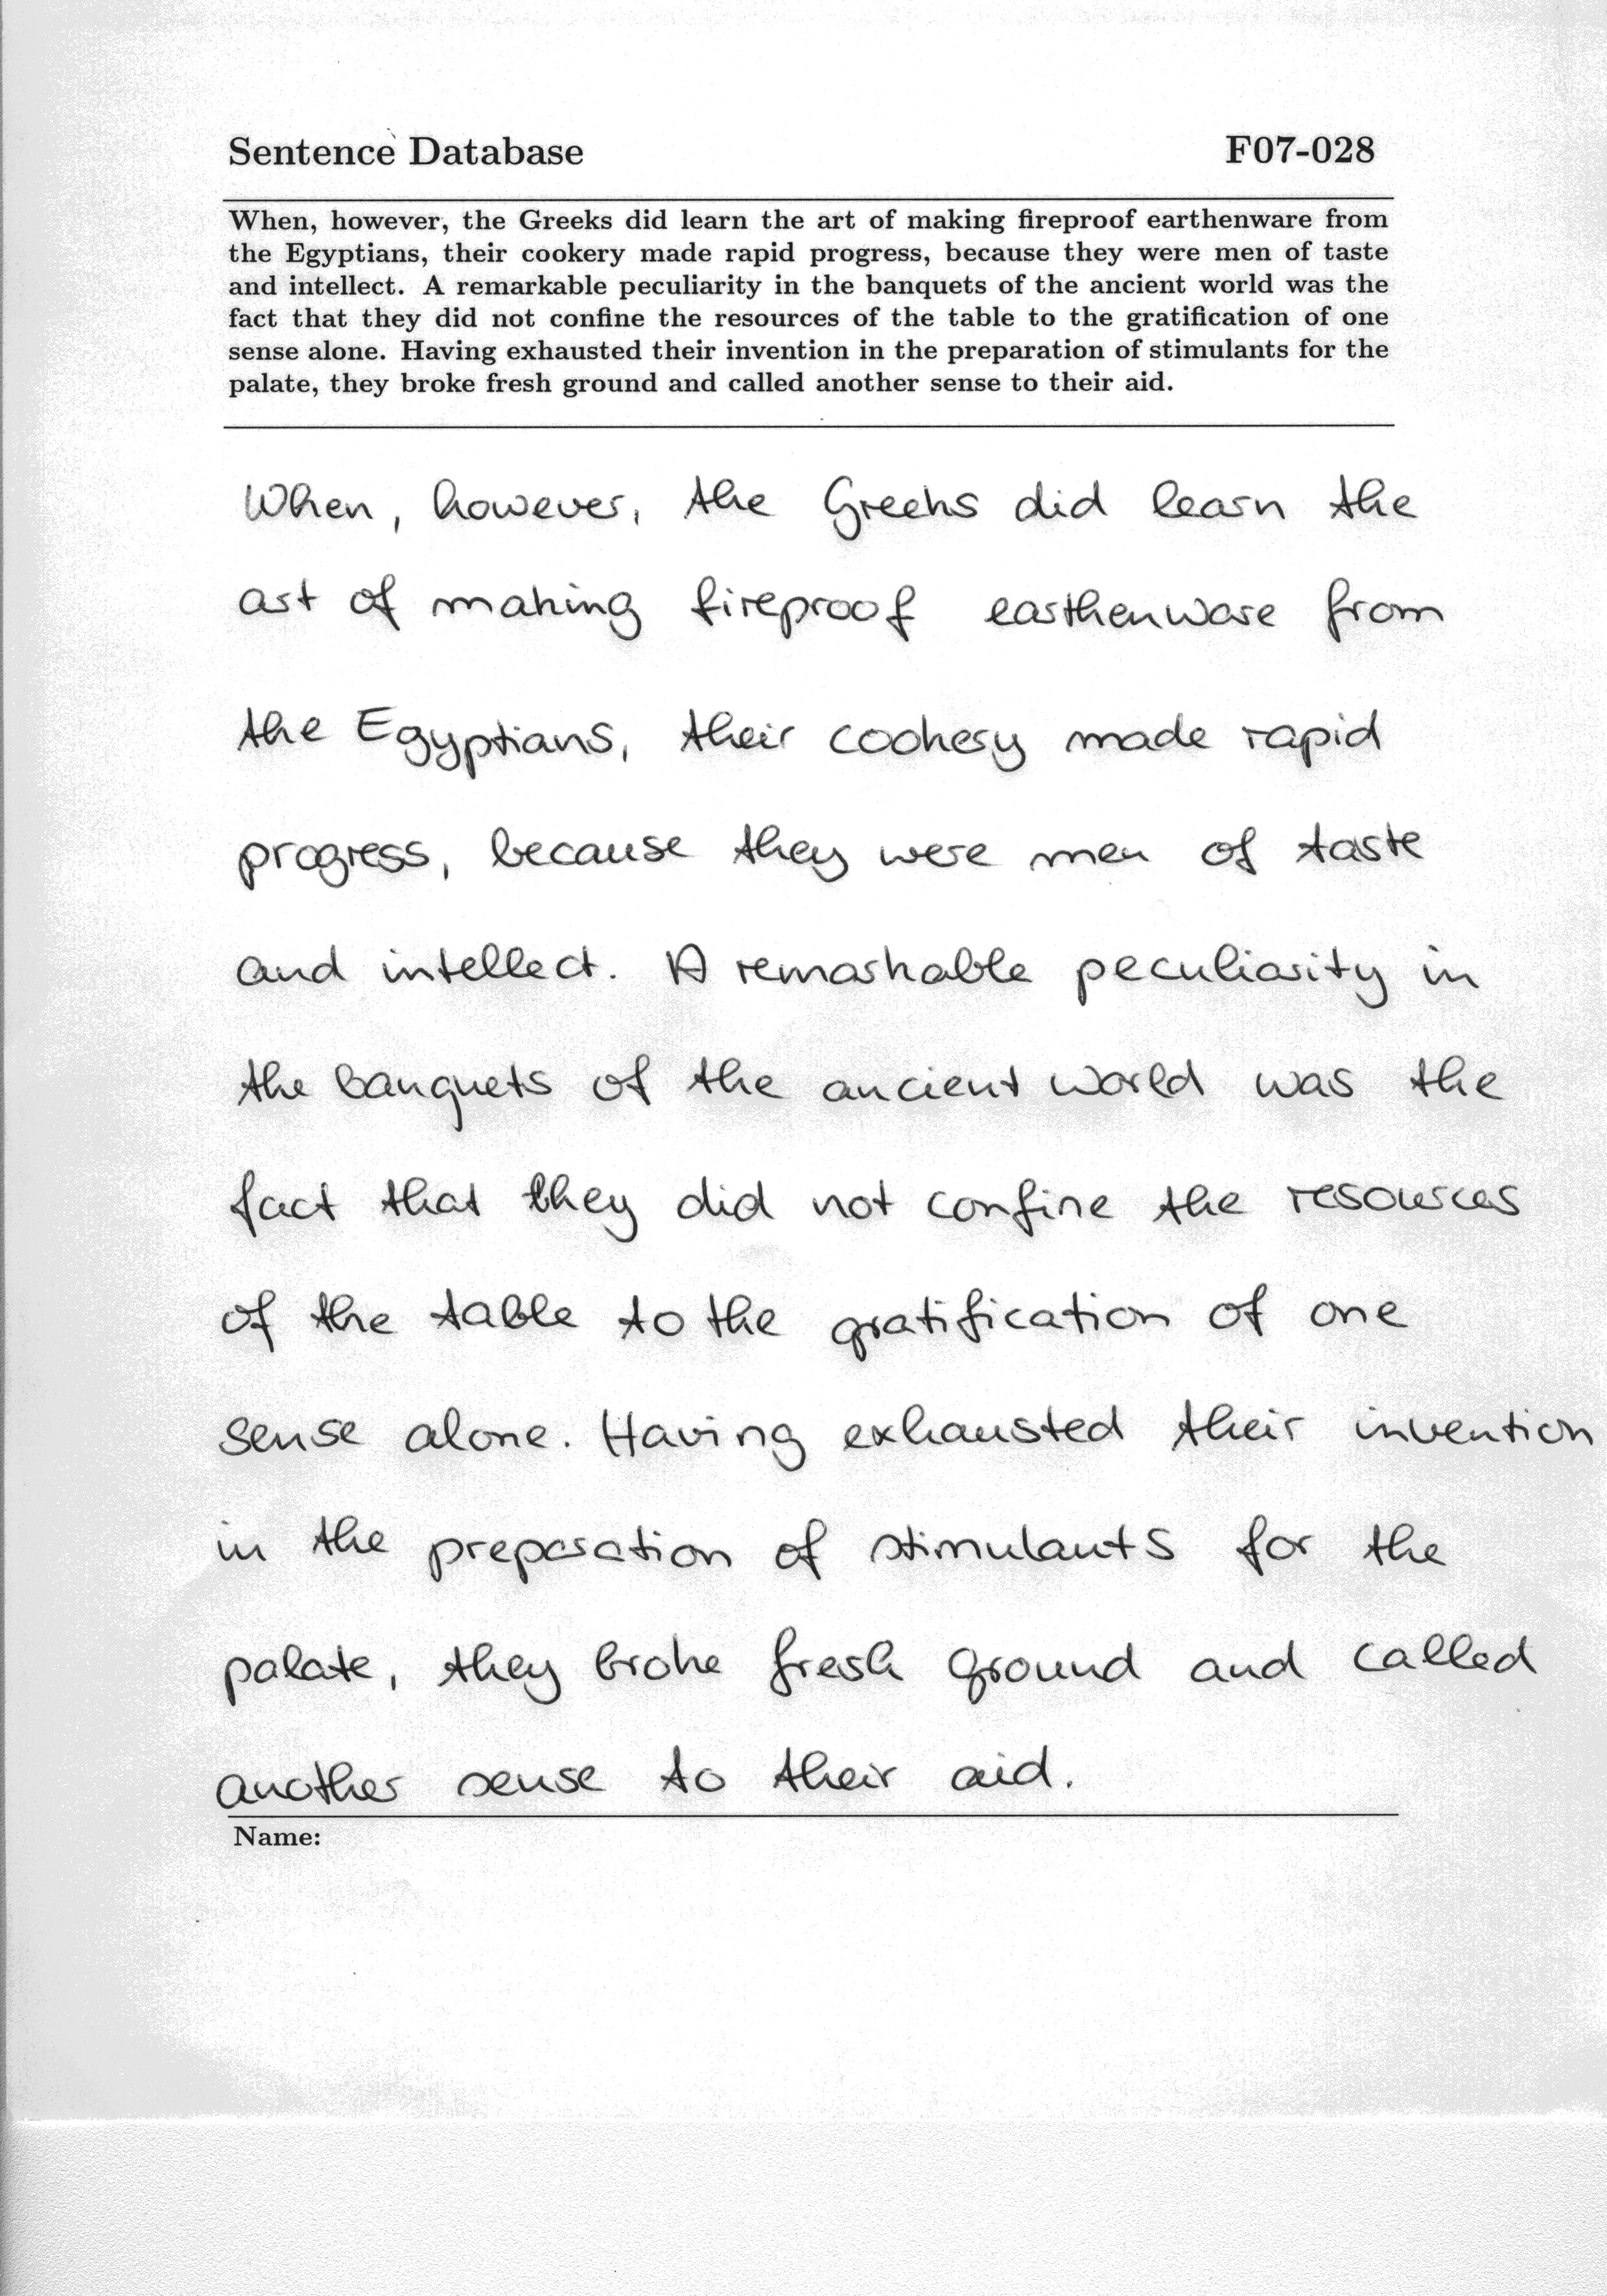 Sentence Database F07-028
When, however, the Greeks did learn the art of making fireproof earthenware from
the Egyptians, their cookery made rapid progress, because they were men of taste
and intellect. A remarkable peculiarity in the banquets of the ancient world was the
fact that they did not confine the resources of the table to the gratification of one
sense alone. Having exhausted their invention in the preparation of stimulants for the
palate, they broke fresh ground and called another sense to their aid.
When, however, the Greeks did learn the
art of making fireproof earthenware from
the Egyptians, their cookery made rapid
progress, because they were men of taste
and intellect. A remarkable peculiarity in
the banquets of the ancient world was the
fact that they did not confine the resources
of the table to the gratification of one
sense alone. Having exhausted their invention
in the preparation of stimulants for the
palate, they broke fresh ground and called
another sense to their aid.
Name: